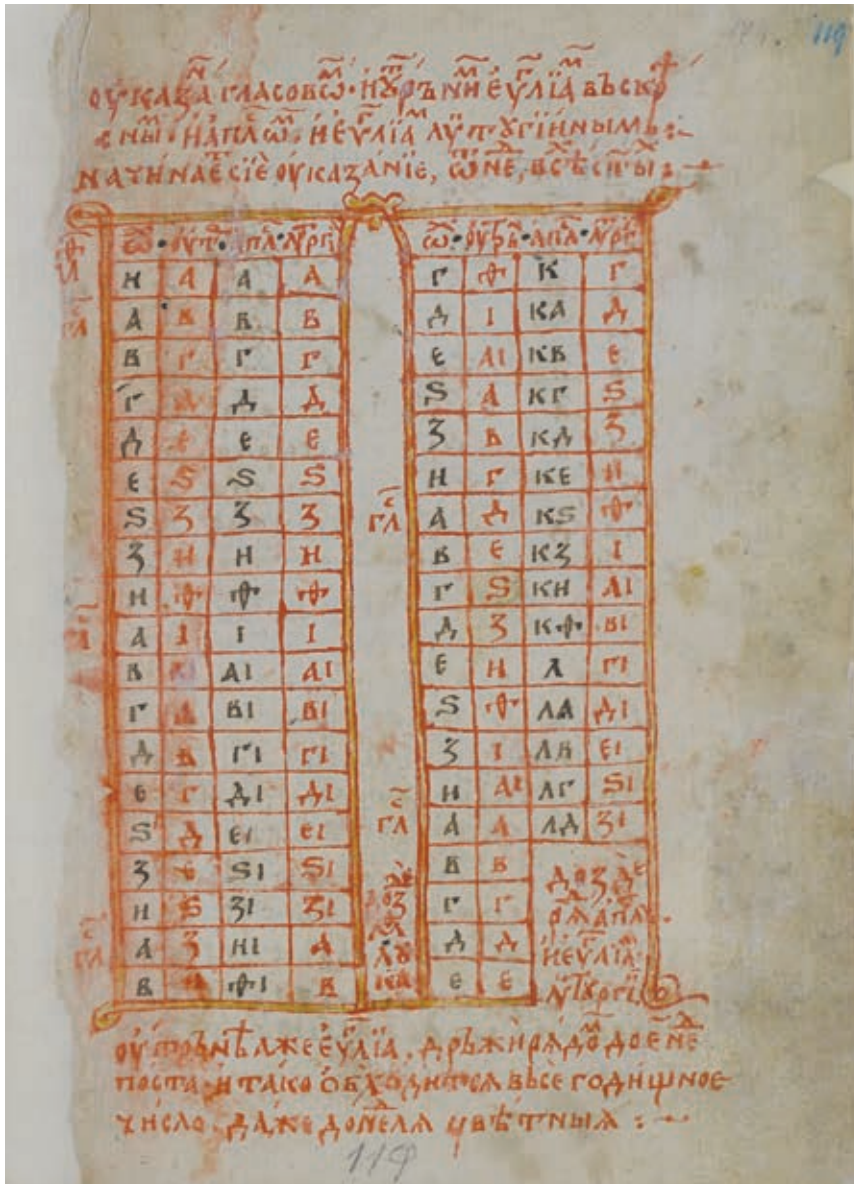 119
оуказаⷩ гласовѡⷨ · и҆ оуⷮръниⷨ е҆ѵⷢлїаⷨ въскрⷭ
снⷨы · и҆ апⷭлѡⷨ · и҆ е҆ѵⷢлїаⷨ лѵтѹргїинымь :~
начинаеⷮ сїе оуказанїе, ѿ нⷣе, всѣⷯ ст҃ыⷯ :~
гⷧаⷭ
ѡⷨ · оуⷮ · апⷧ · лѵⷮрг
и а а а
а в в в
в г г г
г д д д
д е е е
е ѕ ѕ ѕ
ѕ з з з
з и и и
и ѳ ѳ ѳ
а і і і
в аі аі аі
г а ві ві
д в гі гі
е г ді ді
ѕ д еі еі
з е ѕі ѕі
и ѕ зі зі
а з иі а
в и ѳі в
глⷭ
глⷭ
ѡⷨ · оуⷮръ · апⷧ · лѵⷮрг
г ѳ к г
д і ка д
е аі кв е
ѕ а кг ѕ
з в кд з
и г ке и
а д кѕ ѳ
в е кз і
г ѕ ки аі
д з кѳ ві
е и л гі
ѕ ѳ ла ді
з і лв еі
и аі лг ѕі
а а лд зі
в в
г г
д д
е е
до з нⷣе
апⷭлъ
и҆ е҆ѵⷢлїа
лѵтѹргїи
оутрънѣ аже е҆ѵⷢлїа, дръжи рядоⷨ до е҃ нⷣе
поста и тако обⷯодится въсе годищное
число даже до нⷣеля цвѣтныя :~
119